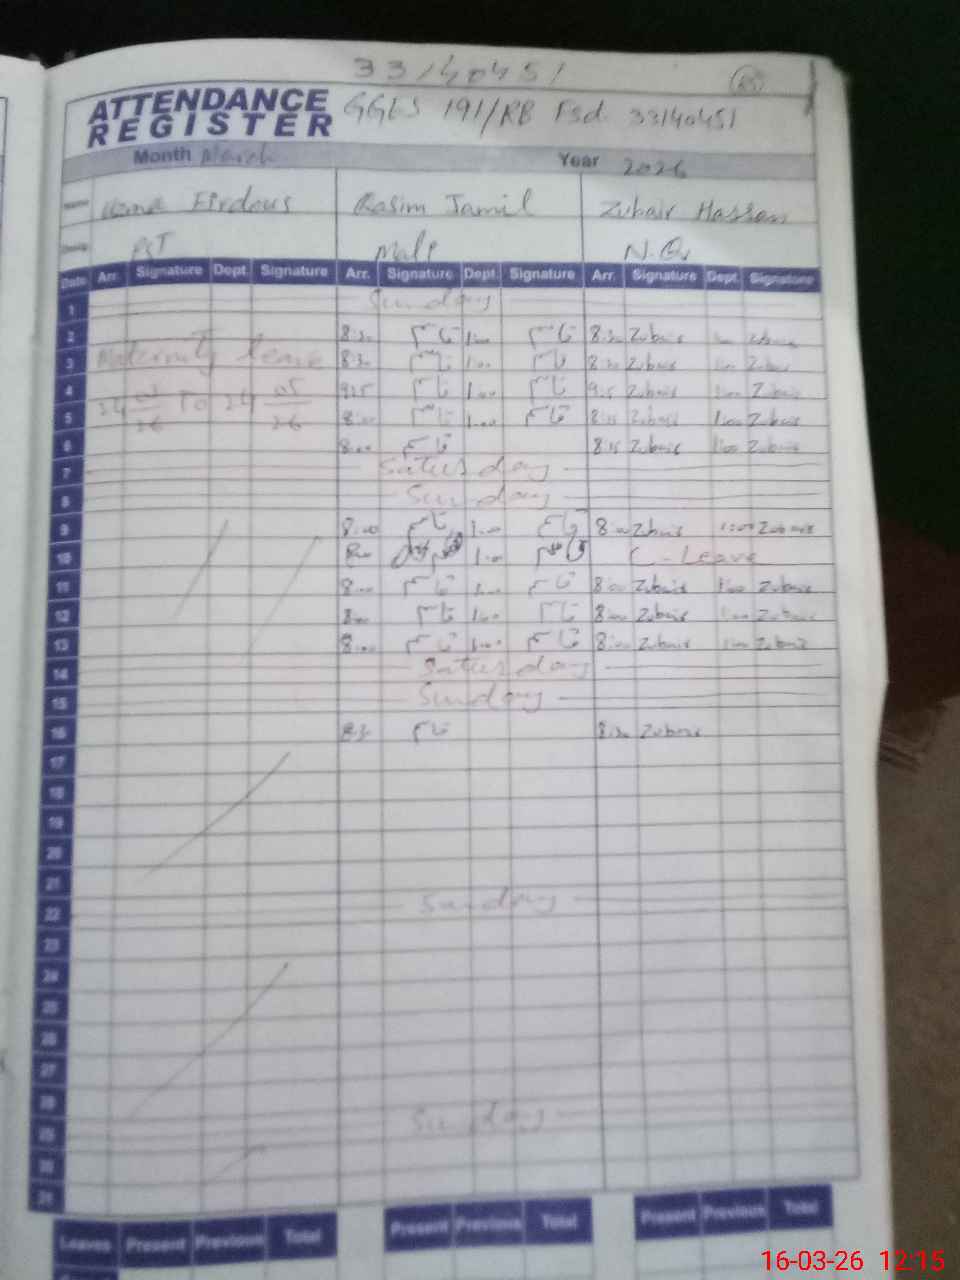 33140451
ATTENDANCE REGISTER GGES 191/RB Fsd 33140451
Month March Year 2026
Name Firdous Qasim Jamil Zubair Hassan
Desig PST Male N.Q
Date Arr. Signature Dept. Signature Arr. Signature Dept. Signature Arr. Signature Dept. Signature
1 Sunday
2 8:30 قاسم 1:00 قاسم 8:30 Zubair Zubair
3 Maternity leave 8:30 قاسم 1:00 قاسم 8:30 Zubair 1:00 Zubair
4 24 To 24 05 9:15 قاسم 1:00 قاسم 9:15 Zubair 1:00 Zubair
5 26 26 8:00 قاسم 1:00 قاسم 8:15 Zubair 1:00 Zubair
6 8:00 قاسم 8:15 Zubair 1:00 Zubair
7 Saturday
8 Sunday
9 8:00 قاسم 1:00 قاسم 8:00 Zubair 1:00 Zubair
10 8:00 1:00 C-Leave
11 8:00 قاسم 1:00 قاسم 8:00 Zubair 1:00 Zubair
12 8:00 قاسم 1:00 قاسم 8:00 Zubair 1:00 Zubair
13 8:00 قاسم 1:00 قاسم 8:00 Zubair 1:00 Zubair
14 Saturday
15 Sunday
16 8:30 قاسم 8:30 Zubair
17
18
19
20
21
22 Sunday
23
24
25
26
27
28
29 Sunday
30
31
Leaves Present Previous Total Present Previous Total Present Previous Total
16-03-26 12:15